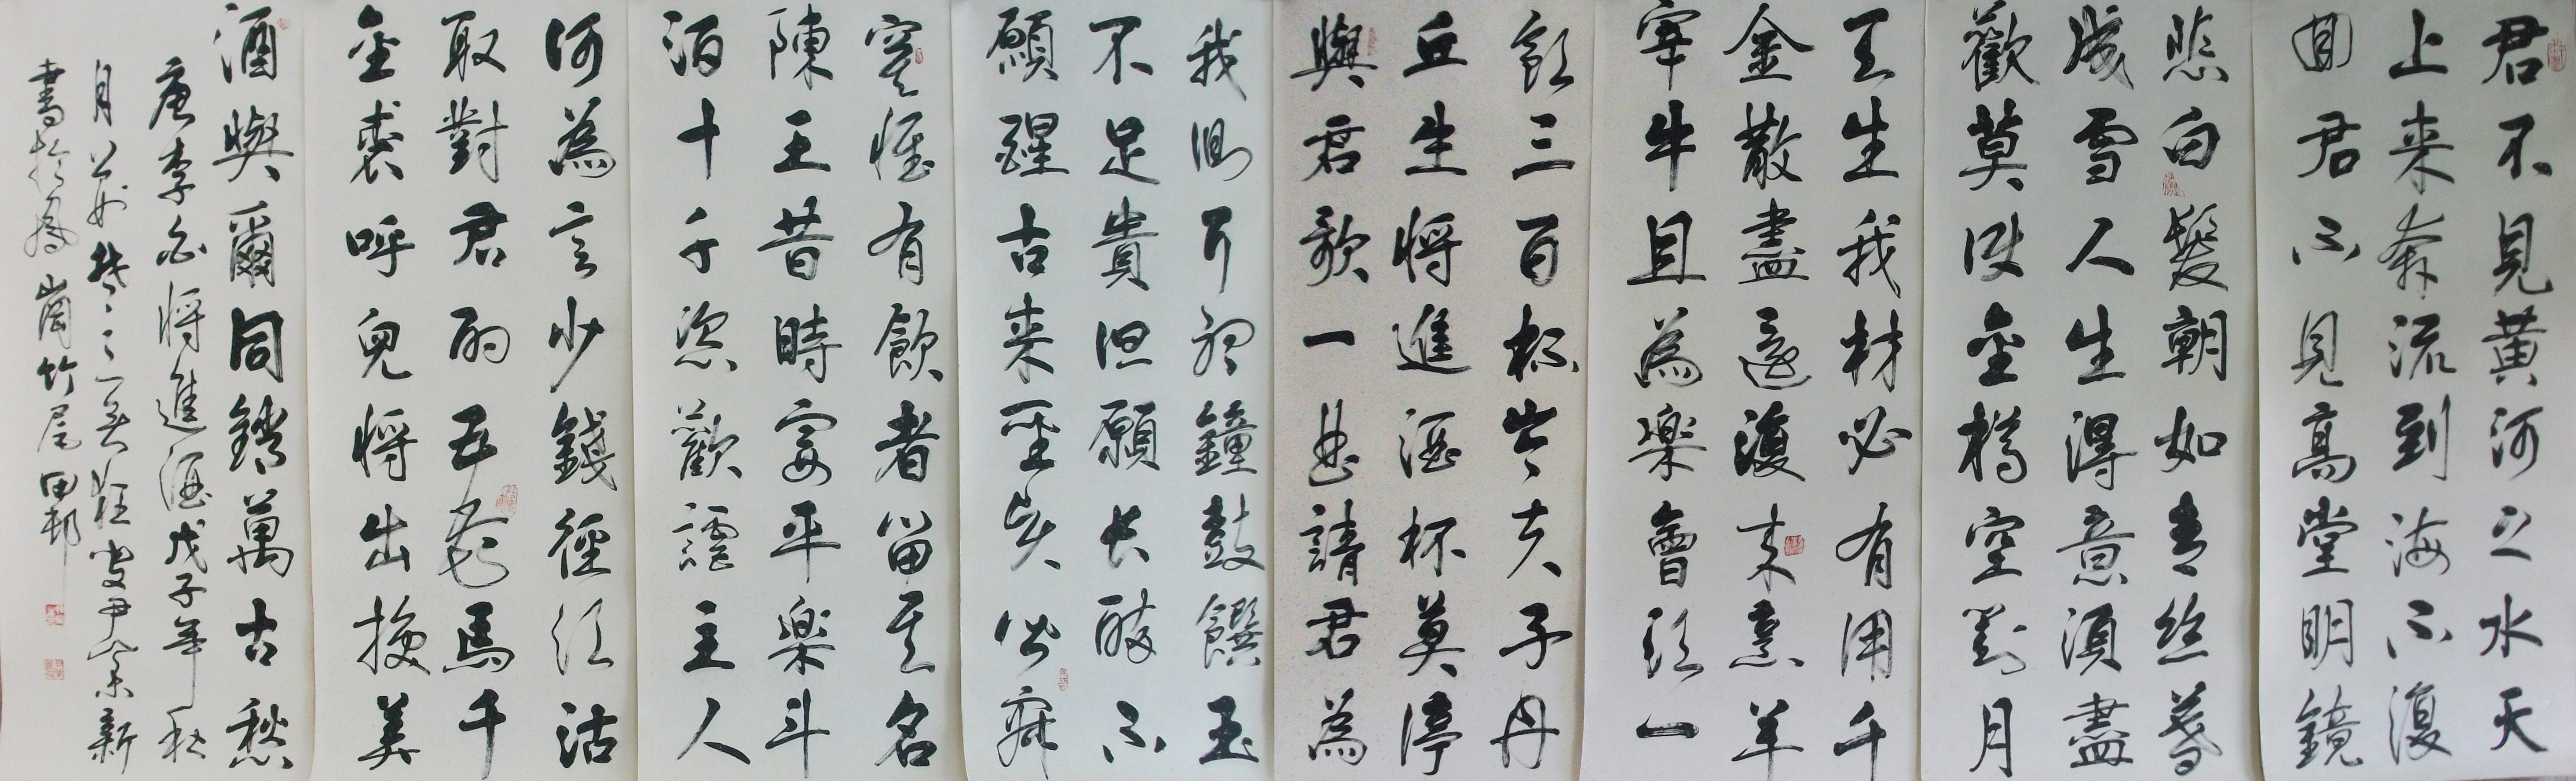 君不見黃河之水天
上来奔流到海不復
回君不見高堂明鏡
悲白髮朝如青丝暮
成雪人生得意須盡
歡莫使金樽空對月
天生我材必有用千
金散盡還復来烹羊
宰牛且為楽會須一
飲三百杯岑夫子丹
丘生将進酒杯莫停
與君歌一曲請君為
我側耳聽鐘鼓饌玉
不足貴但願長醉不
願醒古来聖賢皆寂
寞惟有飲者留其名
陳王昔時宴平楽斗
酒十千恣歡謔主人
何為言少錢徑須沽
取對君酌五花馬千
金裘呼兒将出換美
酒與爾同銷萬古愁
唐李白将進酒戊子年秋
月
書於鳳崗竹尾田邨